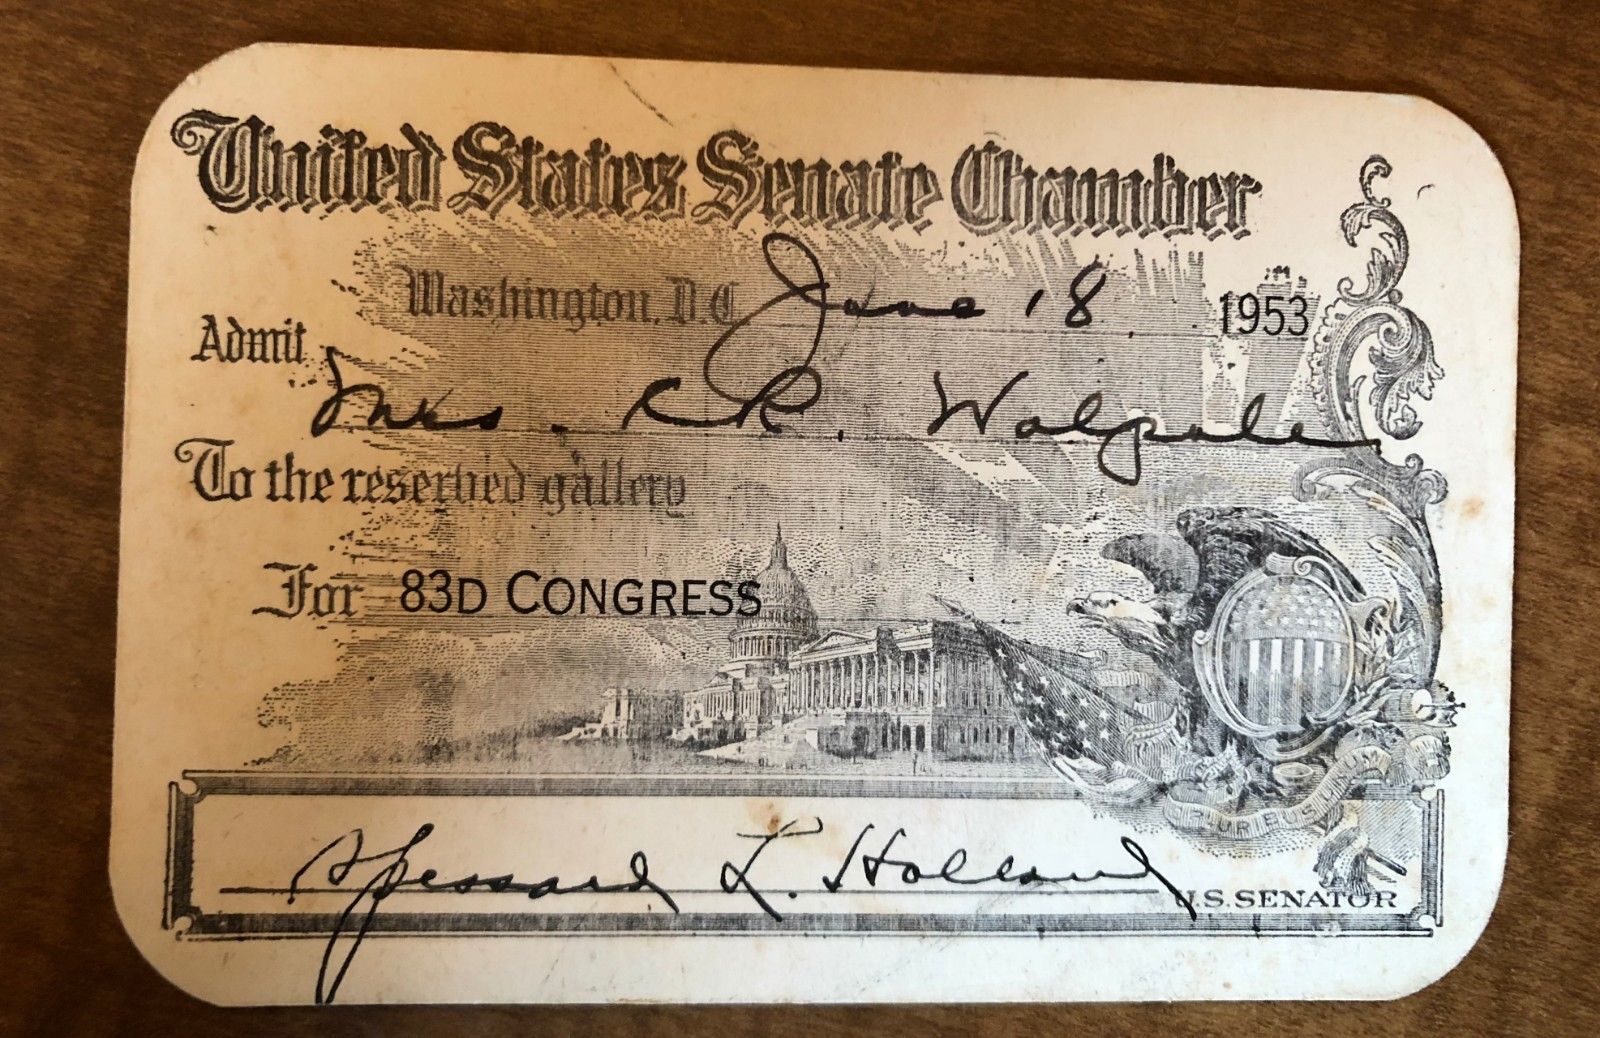 United States Senate Chamber
Washington, D.C. June 18, 1953
Admit
Mrs. R. Walpole
To the reserved gallery
For 83D CONGRESS
PLURIBUS UNUM
Spessard L. Holland
U.S. SENATOR